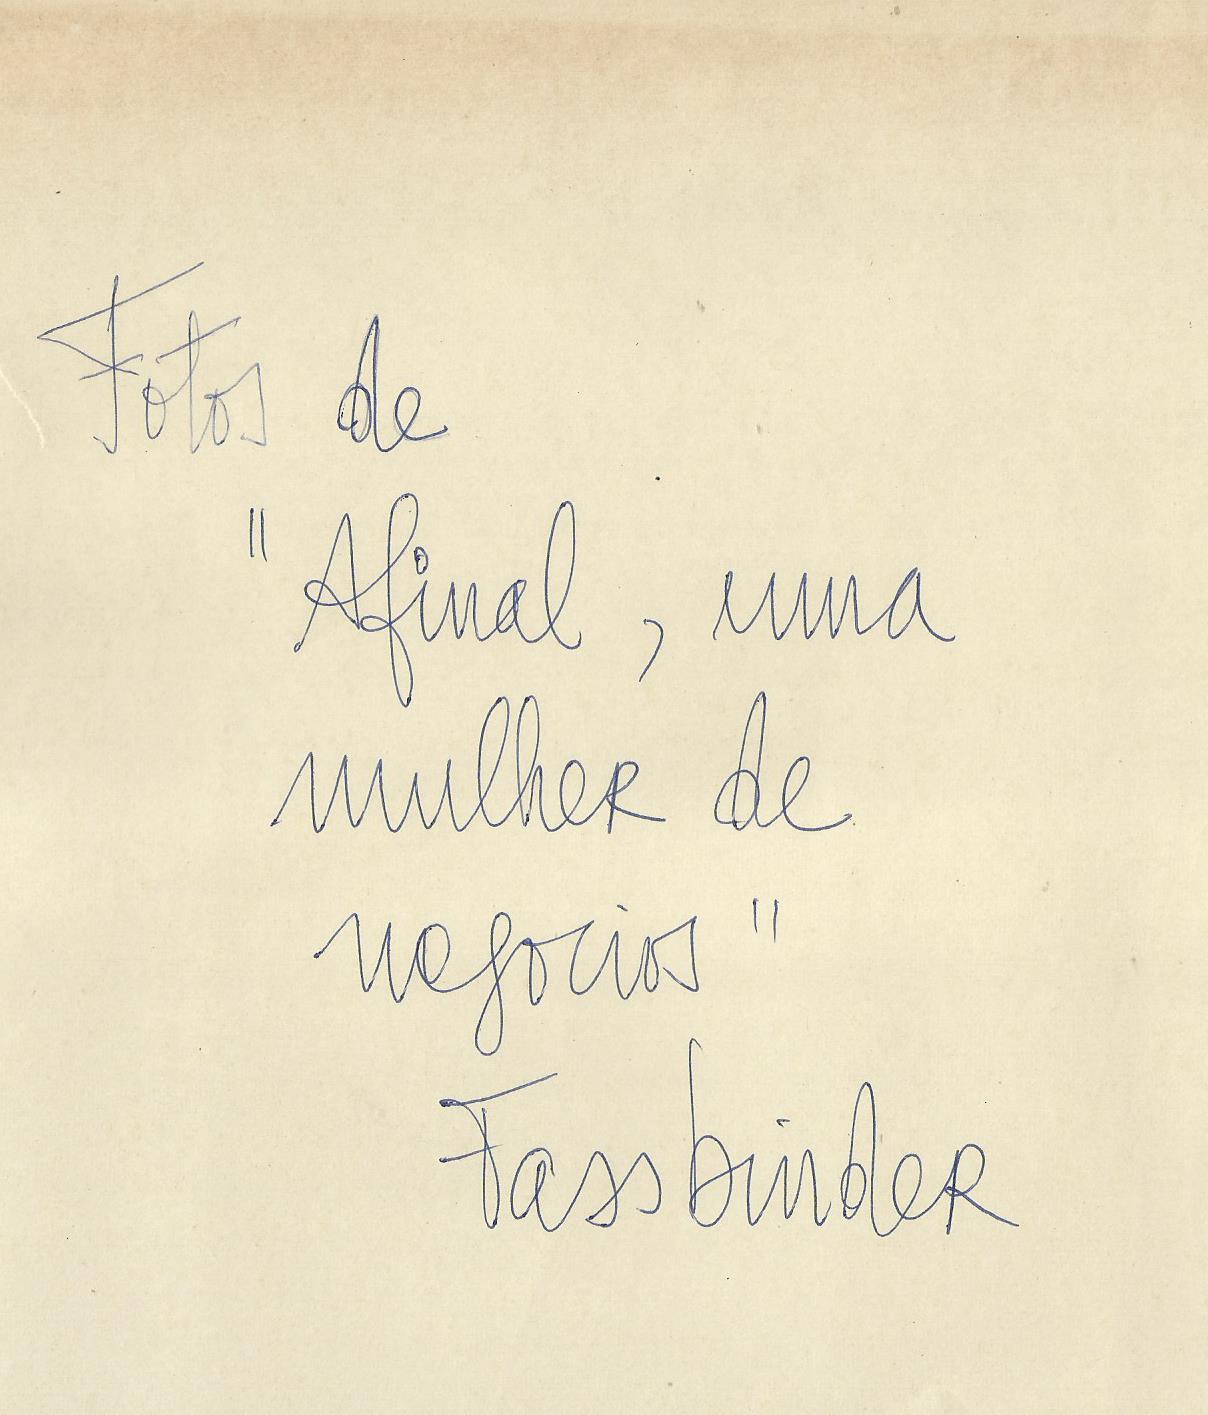 Fotos de
"Afinal, uma
mulher de
negocios"
Fassbinder